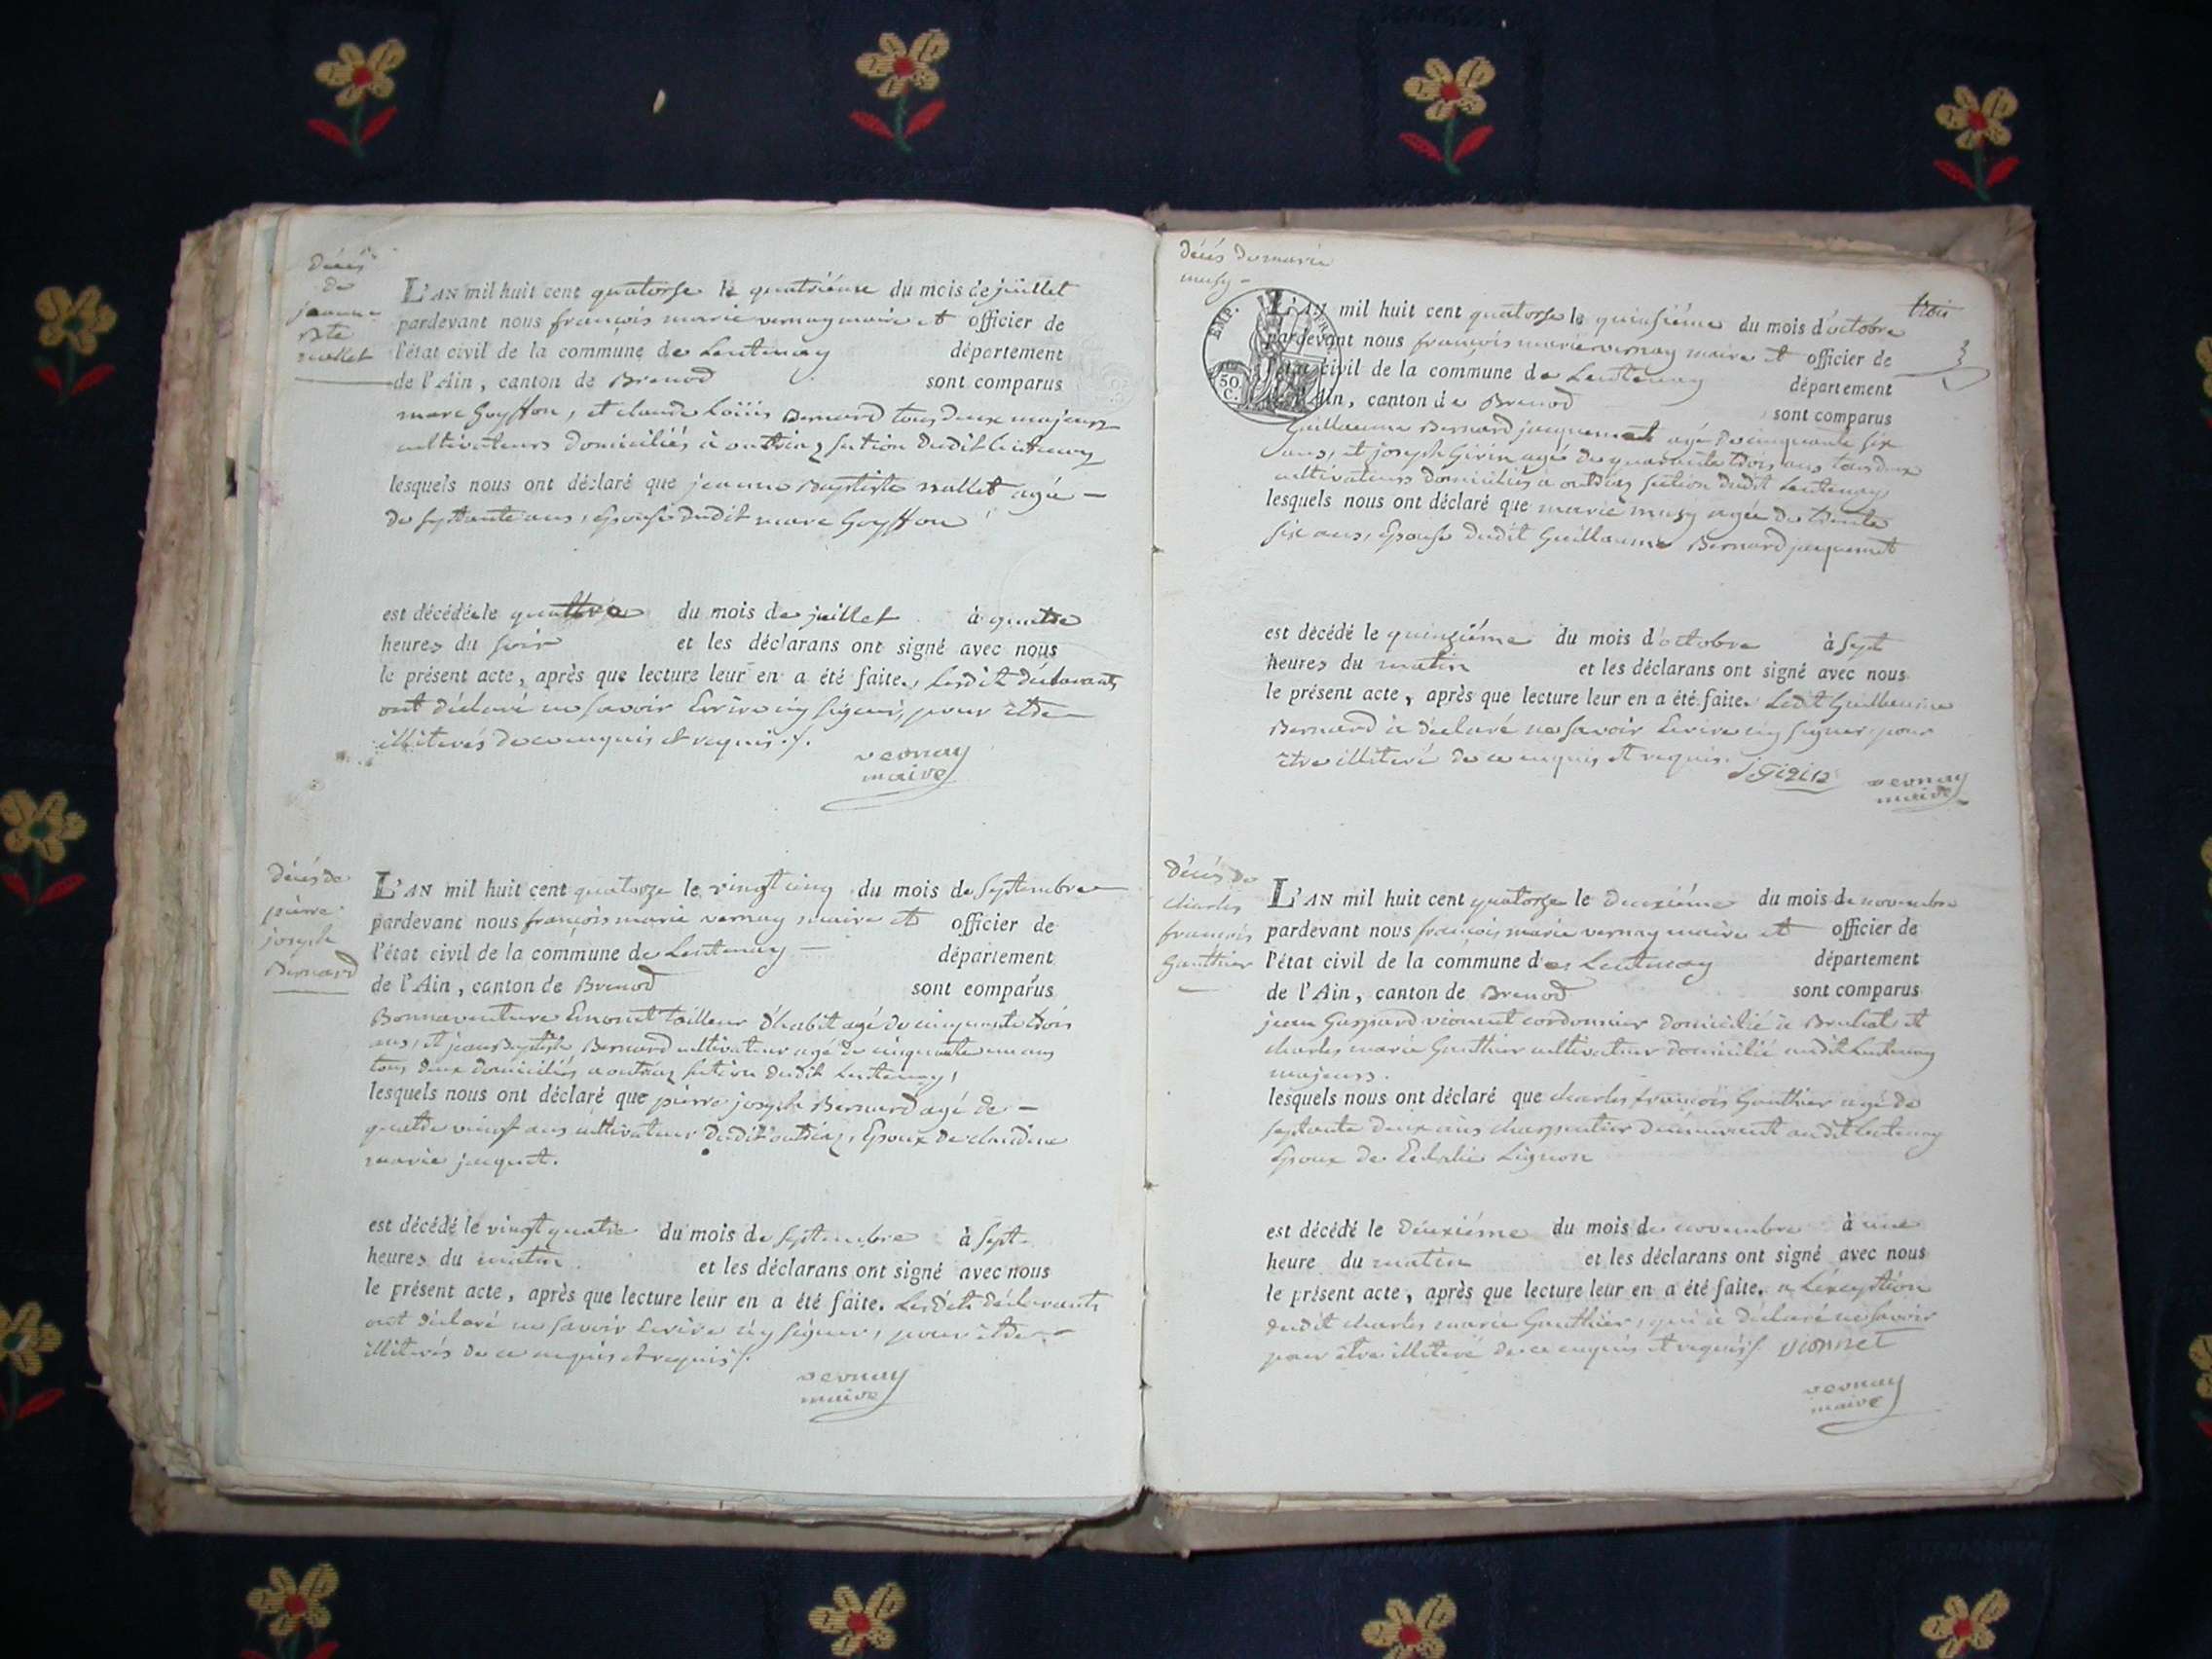 décès
de
jeanne
Bte
mallet
L'AN mil huit cent quatorse le quatriéme du mois de juillet
pardevant nous françois marie vernay maire et officier de
l'état civil de la commune de Lentenay département
de l'Ain, canton de Brenod sont comparus
marc Goyffon, et claude Loüis Bernard tous deux majeurs
cultivateurs domiciliés à outriaz section dudit Lentenay
lesquels nous ont déclaré que jeanne Baptiste mallet agée
de septante ans, Epouse dudit marc Goyffon
est décédée le quattre du mois de juillet à quatre
heures du soir et les déclarans ont signé avec nous
le présent acte, après que lecture leur en a été faite, Lesdit déclarants
ont déclaré ne savoir Ecrire ny signer, pour être
illiterés de ce enquis et requis ./.
vernay
maire
décès de
pierre
joseph
Bernard
L'AN mil huit cent quatorze le vingt cinq du mois de septembre
pardevant nous françois marie vernay maire et officier de
l'état civil de la commune de Lentenay département
de l'Ain, canton de Brenod sont comparus
Bonnaventure tailleur d'habit agé de cinquante trois
ans, et jean Baptiste Bernard cultivateur agé de cinquante un ans
tous deux domiciliés a outriaz section dudit Lentenay,
lesquels nous ont déclaré que pierre joseph Bernard agé de
quatre vingt ans cultivateur dudit outriaz, Epoux de claudine
marie jaquet.
est décédé le vingt quatre du mois de septembre à sept
heures du matin et les déclarans ont signé avec nous
le présent acte, après que lecture leur en a été faite. Lesdits déclarants
ont déclaré ne savoir Ecrire ny signer, pour être
illiterés de ce enquis et requis ./.
vernay
maire
décès de marie
musy
trois
EMP. FR.
50
C.
3
L'AN mil huit cent quatorse le quinsiéme du mois d'octobre
pardevant nous françois marie vernay maire et officier de
l'état civil de la commune de Lentenay département
de l'Ain, canton de Brenod sont comparus
Guillaume Bernard jacquemet agé de cinquante six
ans, et joseph Girin agé de quarante trois ans tous deux
cultivateurs domiciliés a outriaz section dudit Lentenay
lesquels nous ont déclaré que marie musy agée de trente
six ans, Epouse dudit Guillaume Bernard jacquemet
est décédé le quinziéme du mois d'octobre à sept
heures du matin et les déclarans ont signé avec nous
le présent acte, après que lecture leur en a été faite. Ledit Guillaume
Bernard a déclaré ne savoir Ecrire ny signer pour
être illiteré de ce enquis et requis. j Girin
vernay
maire
décès de
charles
francois
Gauthier
L'AN mil huit cent quatorze le deuxiéme du mois de novembre
pardevant nous françois marie vernay maire et officier de
l'état civil de la commune de Lentenay département
de l'Ain, canton de Brenod sont comparus
jean Gaspard vionnet cordonnier domicilié à et
charles marie Gauthier cultivateur domicilié audit Lentenay
majeurs.
lesquels nous ont déclaré que charles françois Gauthier agé de
septante deux ans charpentier demeurant audit Lentenay
Epoux de Lignon
est décédé le deuxiéme du mois de novembre à une
heure du matin et les déclarans ont signé avec nous
le présent acte, après que lecture leur en a été faite. a L'exception
dudit charles marie Gauthier, qui a déclaré ne savoir
pour être illiteré de ce enquis et requis ./. vionnet
vernay
maire